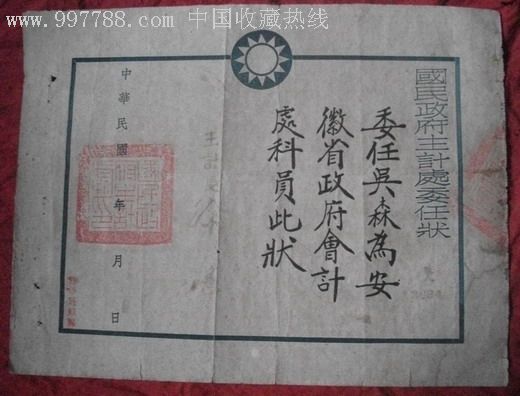 www.997788.com 中国收藏热线
國民政府主計處委任狀
委任吳森為安
徽省政府會計
處科員此狀
中華民國 年 月 日